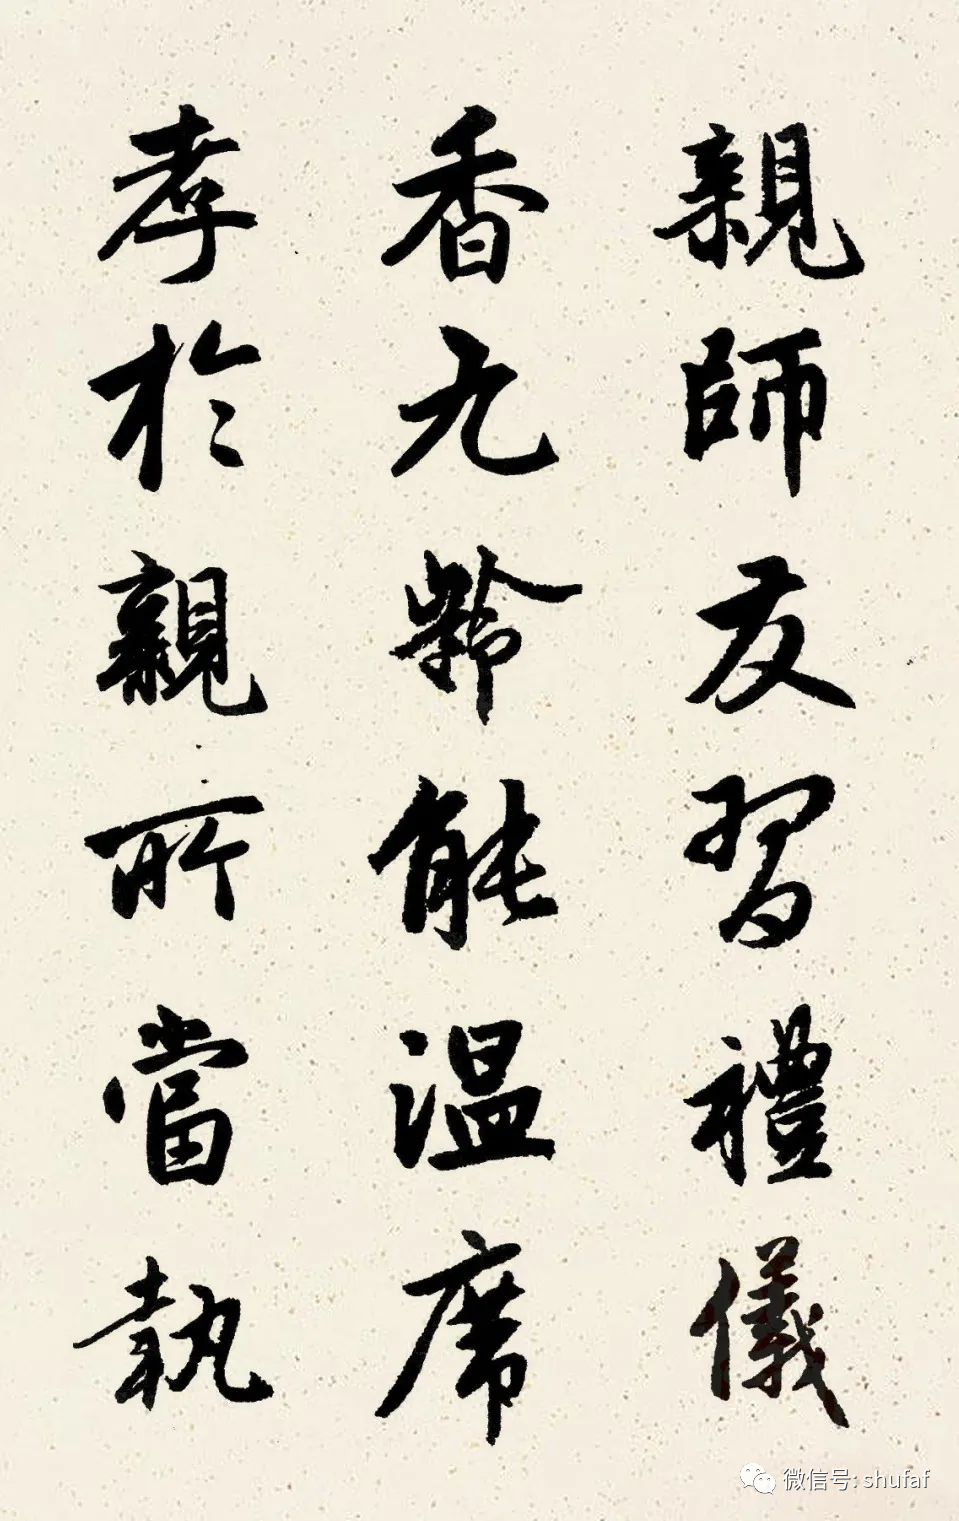 親師友習禮儀
香九齡能温席
孝於親所當執
微信号: shufaf